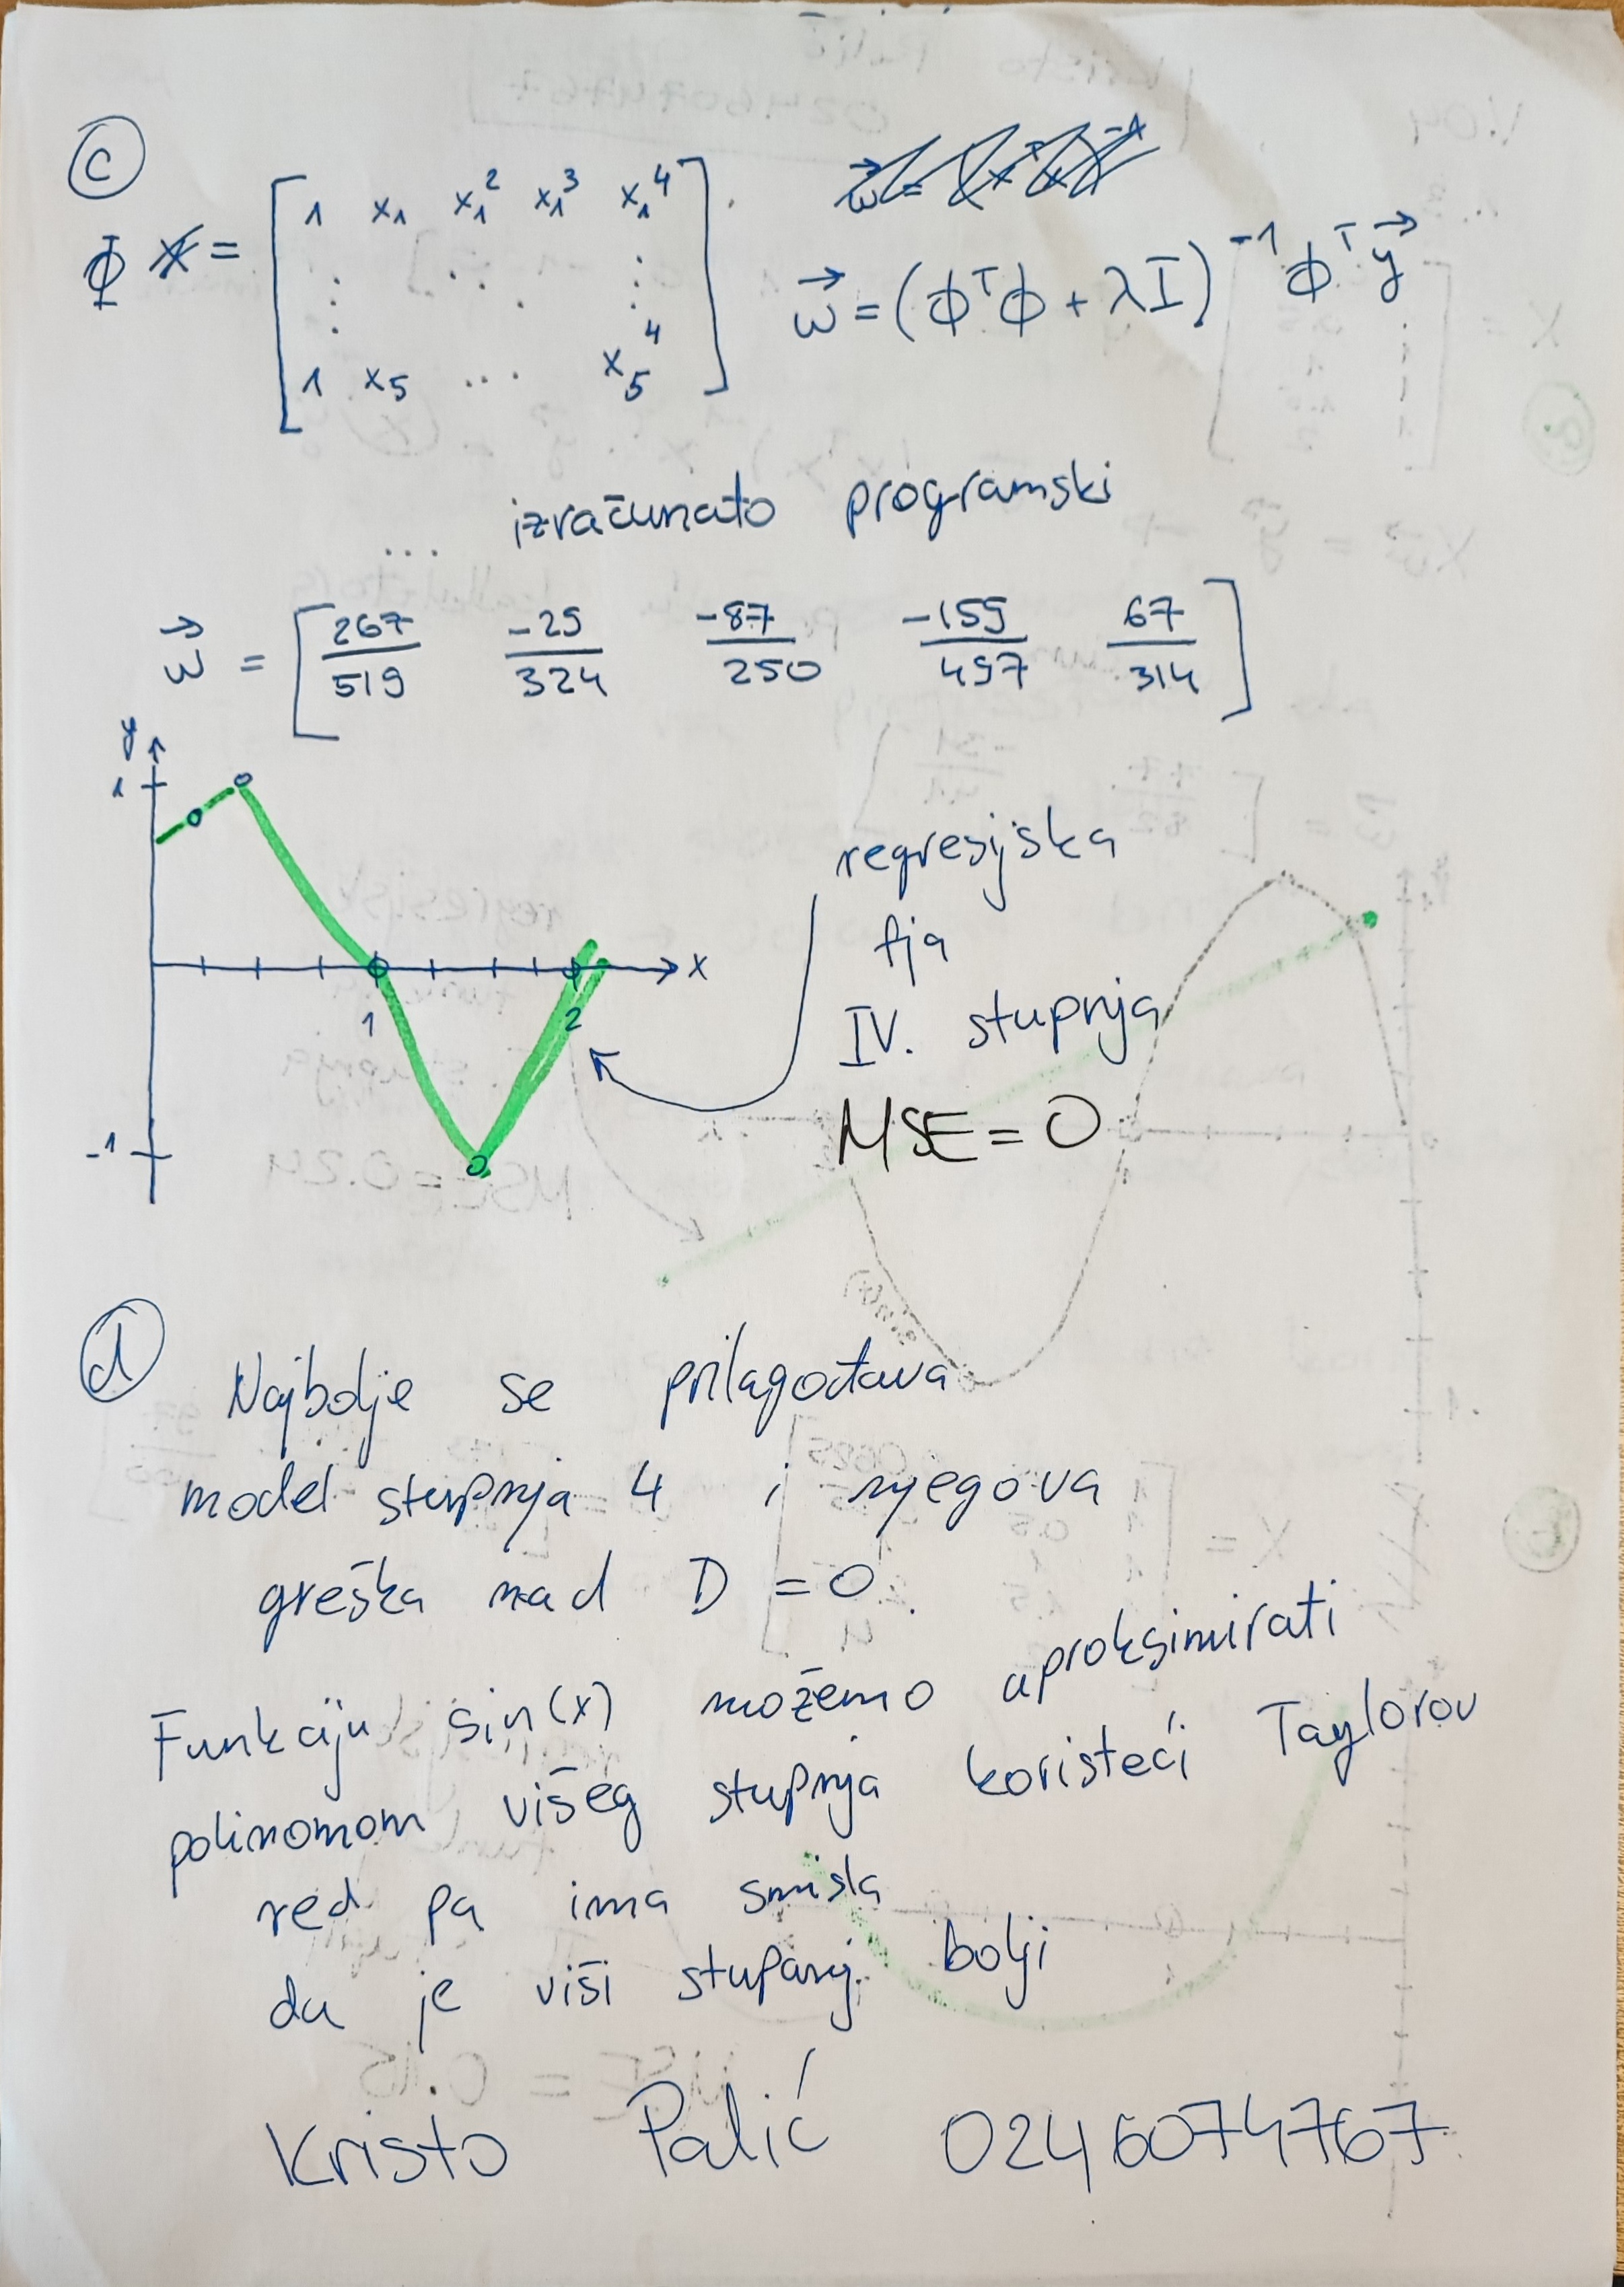 c
Φ = [ 1 x₁ x₁² x₁³ x₁⁴
⋮ ⋱ ⋮
1 x₅ ... x₅⁴ ]
w⃗ = (ΦᵀΦ + λI)⁻¹ Φᵀ y⃗
... izračunato programski
w⃗ = [ 267/519 -25/324 -87/250 -159/497 67/314 ]
y
1
x
1
2
-1
regresijska
fja
IV. stupnja
MSE = 0
d
Najbolje se prilagođava
model stupnja 4 i njegova
greška nad D = 0.
Funkciju sin(x) možemo aproksimirati
polinomom višeg stupnja koristeći Taylorov
red pa ima smisla
da je viši stupanj bolji
Kristo Palić 0246074767